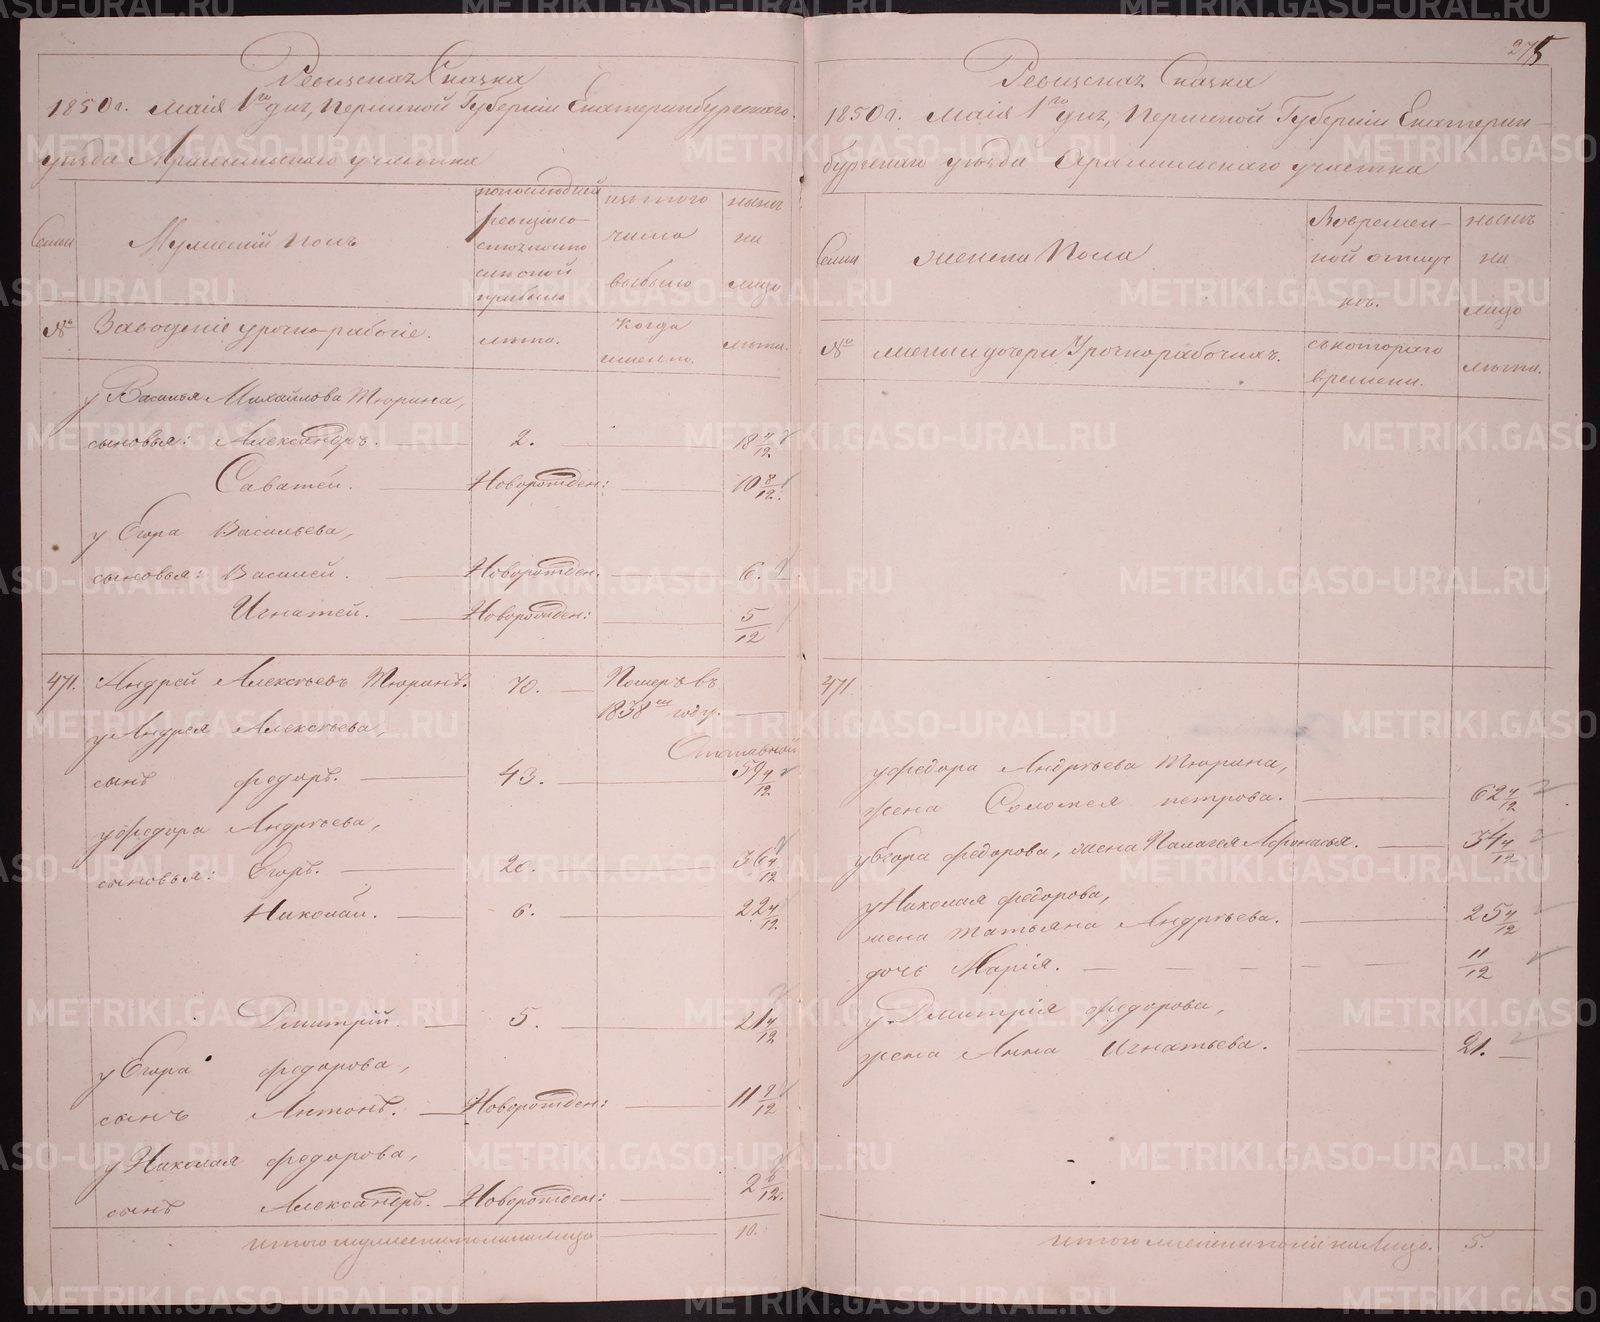 275
Ревизская Сказка
1850 г. Маія 1го дня, Пермской Губерніи Екатеринбургскаго
уѣзда Арамильскаго участка
Семьи
Мужескій полъ
по последней
ревизіи
состояло
и послѣ оной
прибыло
изъ того
числа
выбыло
нынѣ
на
лицо
№
Заводскіе урочно-рабочіе.
лѣта.
Когда
именно.
лѣта.
у Василья Михайлова Тюрина,
сыновья: Александръ. 2. 18 4/12
Саватей. Новорожден: 10 8/12
у Егора Васильева,
сыновья: Василей. Новорожден. 6.
Игнатей. Новорожден: 5/12
471. Андрей Алексѣевъ Тюринъ. 70. Померъ въ
1838м году.
у Андрея Алексѣева, Отставной
сынъ Федоръ. 43. 59 4/12
у Федора Андрѣева,
сыновья: Егоръ. 20. 36 4/12
Николай. 6. 22 4/12
Дмитрій. 5. 21 4/12
у Егора Федорова,
сынъ Антонъ. Новорожден: 11 9/12
у Николая Федорова,
сынъ Александръ. Новорожден: 2 6/12.
Итого мужескаго пола на лицо 10.
Ревизская Сказка
1850 г. Маія 1го дня, Пермской Губерніи Екатерин-
бургскаго уѣзда Арамильскаго участка
Семьи
женска Пола
Во времен-
ной отлуч
кѣ.
нынѣ
на
лицо
№
жены и дочери Урочнорабочихъ.
съ котораго
времени.
лѣта.
471
у Федора Андрѣева Тюрина,
жена Соломея Петрова. 62 4/12
у Егора Федорова, жена Палагея Афонасья. 34 4/12
у Николая Федорова,
жена Татьяна Андрѣева. 25 4/12
дочь Марія. 11/12
у Дмитрія Федорова,
жена Анна Игнатьева. 21.
Итого женскаго на лицо. 5.
METRIKI.GASO-URAL.RU